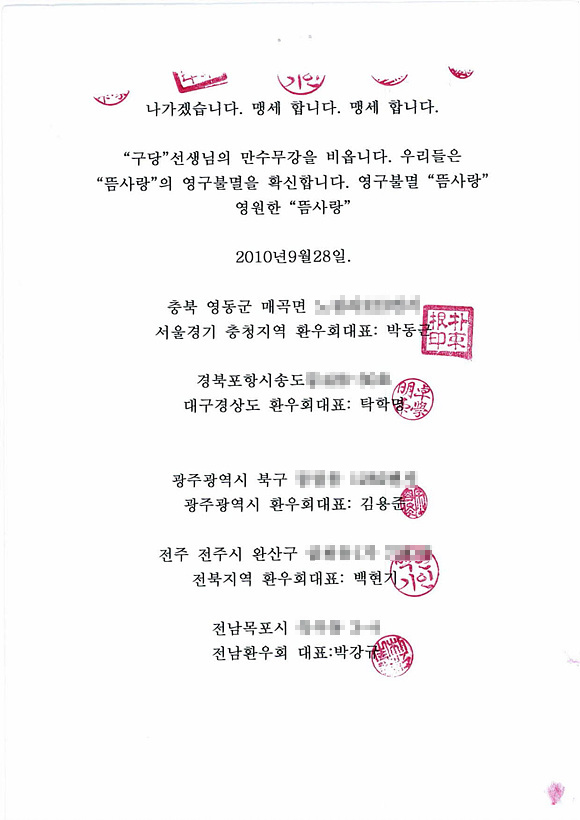 나가겠습니다. 맹세 합니다. 맹세 합니다.
“구당”선생님의 만수무강을 비옵니다. 우리들은
“뜸사랑”의 영구불멸을 확신합니다. 영구불멸 “뜸사랑”
영원한 “뜸사랑”
2010년9월28일.
충북 영동군 매곡면
서울경기 충청지역 환우회대표: 박동근
朴東根印
경북포항시송도
대구경상도 환우회대표: 탁학명
광주광역시 북구
광주광역시 환우회대표: 김용준
전주 전주시 완산구
전북지역 환우회대표: 백현기
전남목포시
전남환우회 대표:박강규